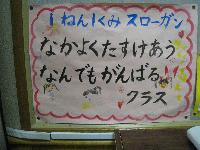 1ねん1くみ スローガン
なかよくたすけあう
なんでもがんばる
クラス